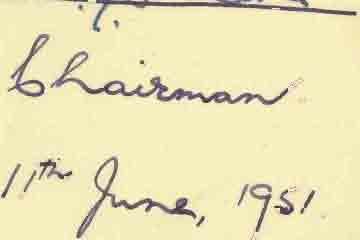 Chairman
11th June, 1951